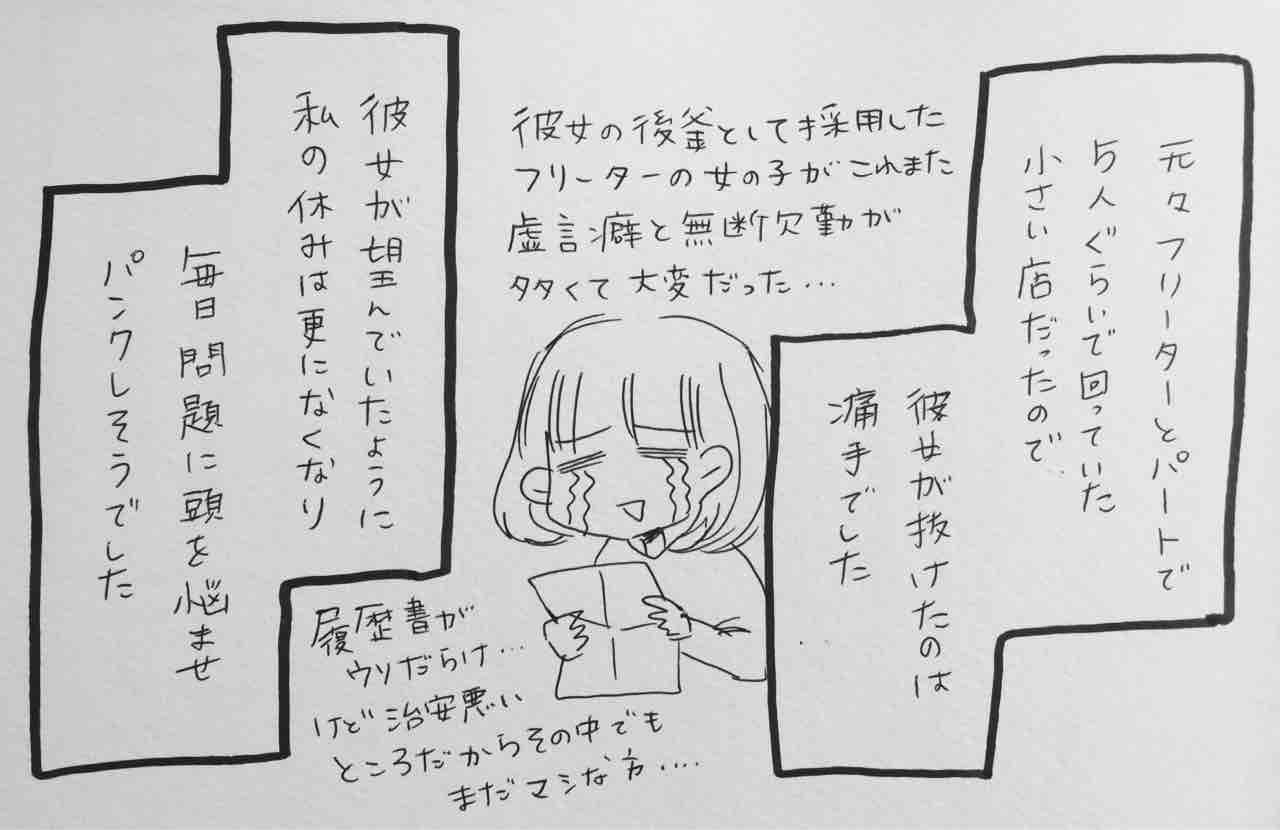 元々フリーターとパートで
5人ぐらいで回っていた
小さい店だったので
彼女が抜けたのは
痛手でした
彼女の後釜として採用した
フリーターの女の子がこれまた
虚言癖と無断欠勤が
多くて大変だった…
履歴書が
ウソだらけ…
けど治安悪い
ところだからその中でも
まだマシな方....
彼女が望んでいたように
私の休みは更になくなり
毎日問題に頭を悩ませ
パンクしそうでした